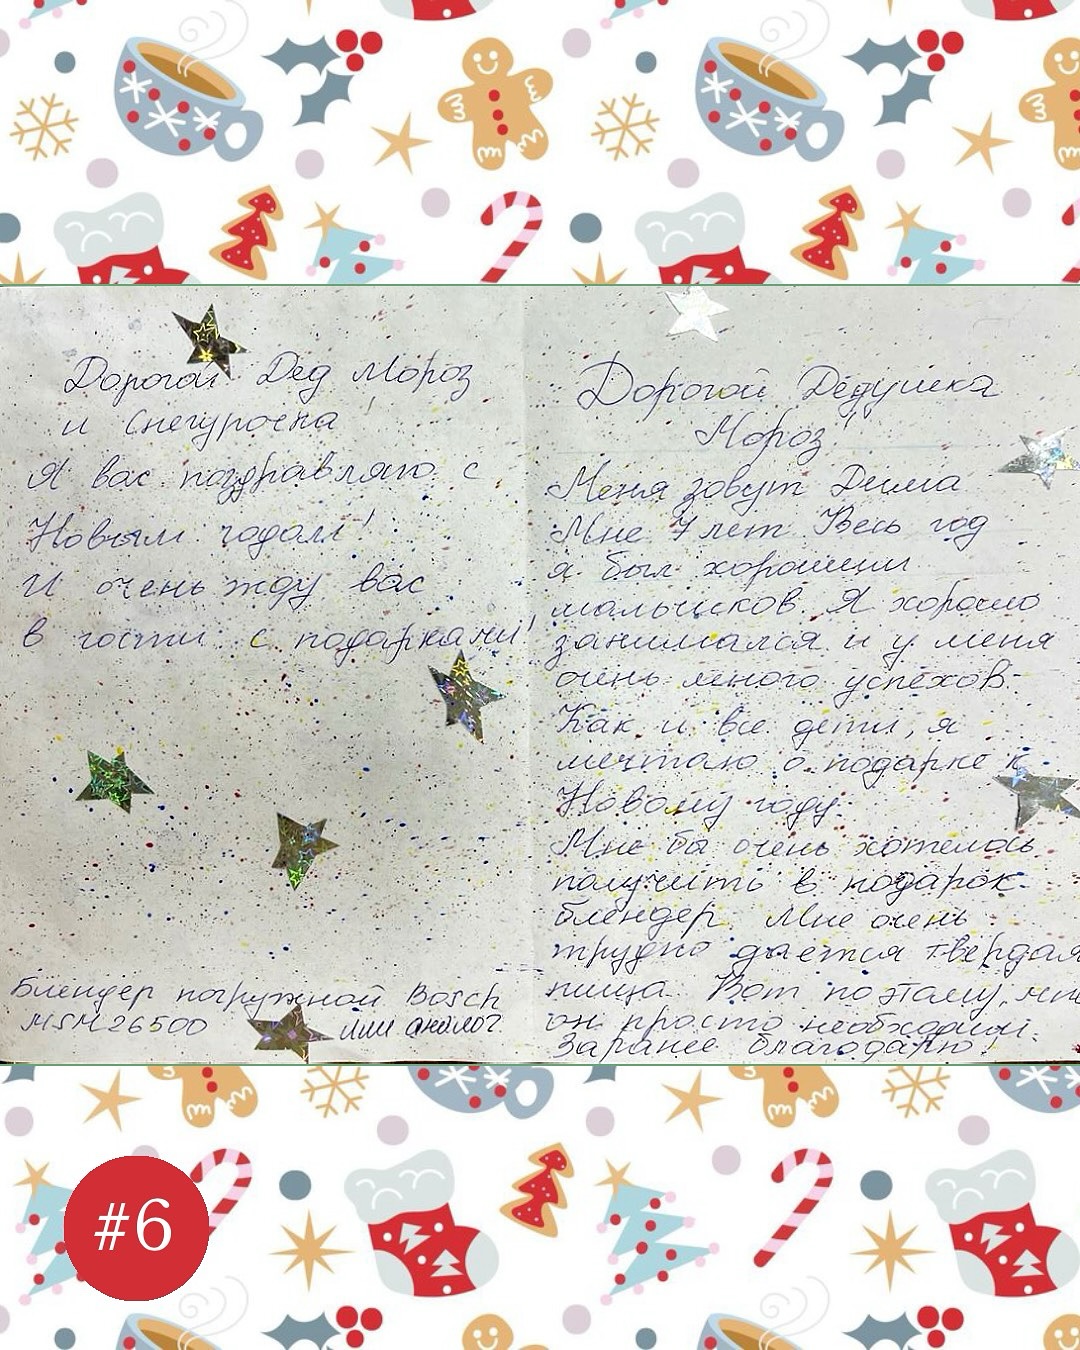 Дорогой Дед Мороз
и Снегурочка!
Я вас поздравляю с
Новым годом!
И очень жду вас
в гости с подарками!
Блендер погружной Bosch
MSM26500 или аналог.
Дорогой Дедушка
Мороз!
Меня зовут Дима
Мне 7 лет. Весь год
я был хорошим
мальчиком. Я хорошо
занимался и у меня
очень много успехов.
Как и все дети, я
мечтаю о подарке к
Новому году.
Мне бы очень хотелось
получить в подарок
блендер. Мне очень
трудно дается твердая
пища. Вот поэтому, мне
он просто необходим.
Заранее благодарю!
#6